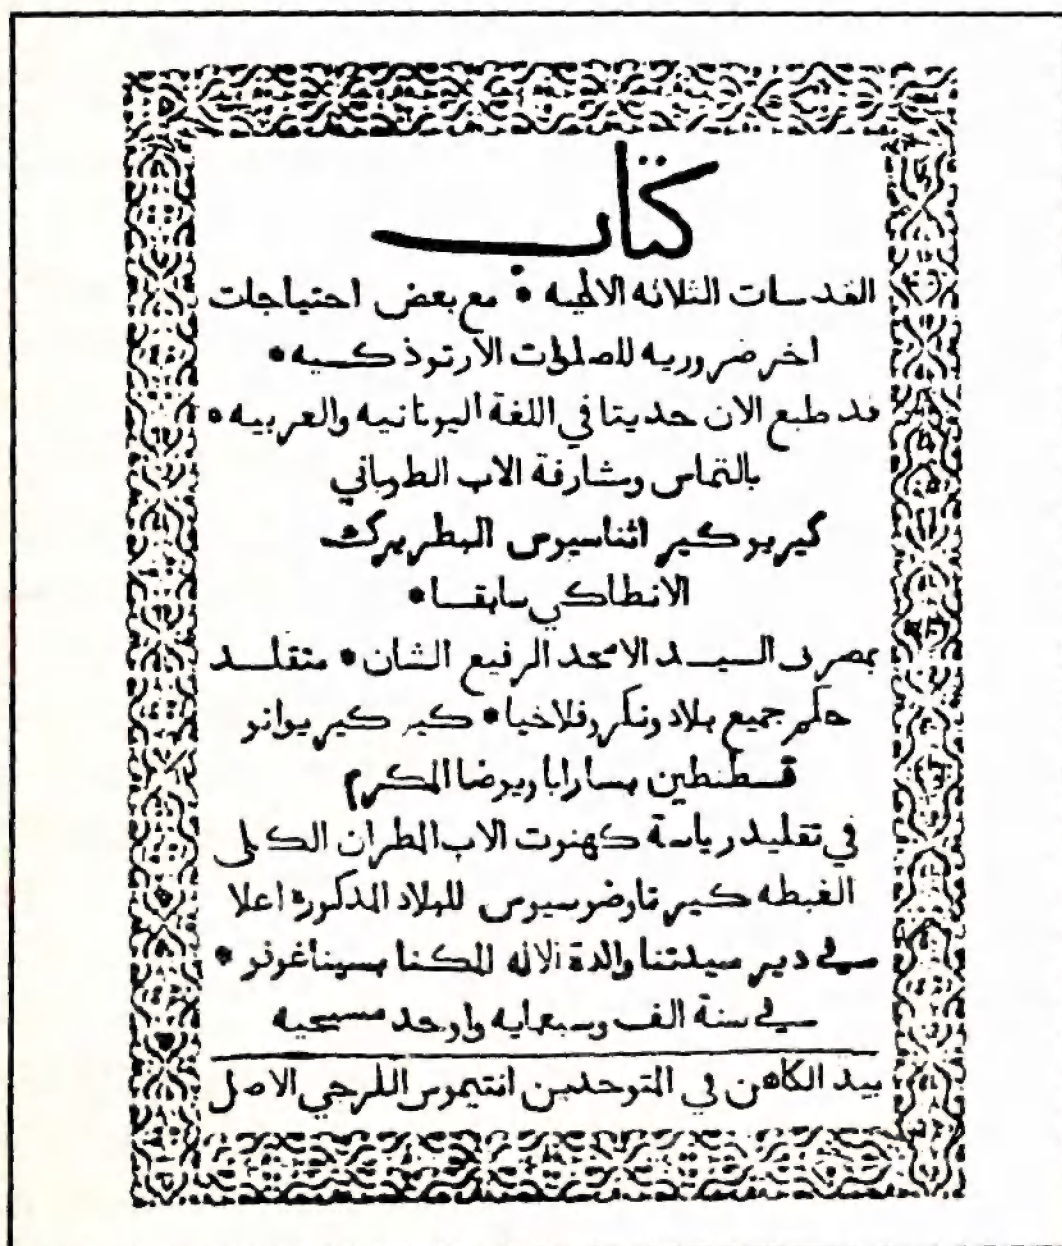 كتاب
القدسات الثلاثه الالهيه • مع بعض احتياجات
اخر ضروريه للصلوات الارتوذكسيه •
قد طبع الان حديثا في اللغة اليونانيه والعربيه •
بالتماس ومشارفة الاب الطوباني
كيريو كير اثناسيوس البطريرك
الانطاكي سابقا •
بمصرف السيد الامجد الرفيع الشان • متقلد
حكم جميع بلاد ونكروفلاخيا • كير كير يوانو
قسطنطين بسارابا ويوضا المكرم
في تقليد رياسة كهنوت الاب المطران الكلى
الغبطه كير تاوضوسيوس للبلاد المذكورة اعلا
في دير سيدتنا والدة الاله المكنا بسيناغوفو •
في سنة الف وسبعمايه واوحد مسيحيه
بيد الكاهن في المتوحدين انتيموس الكرجي الاصل